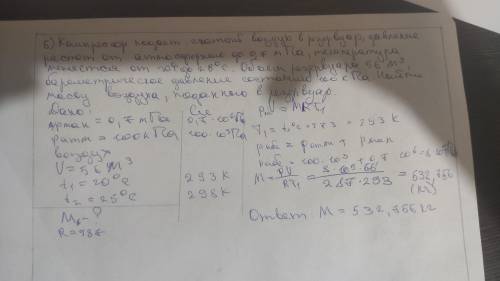 5) Компрессор подает сжатый воздух в резервуар, давление
растет от атмосферного до 0,7 мПа, температура
меняется от 20° до 25°С. Объем резервуара 56 м³,
барометрическое давление составило 100 кПа. Найти
массу воздуха, поданного в резервуар.
Дано:
Pман = 0,7 мПа
Pатм = 100 кПа
воздух
V = 56 м³
t₁ = 20°С
t₂ = 25°С
R = 287
Си
0,7 · 10⁶ Па
100 · 10³ Па
293 К
298 К
T₁ = t₁°C + 273 = 293 К
Pабс = Pатм + Pман
M = PV / RT₁ = 8 · 10⁵ · 56 / 287 · 293 = 532,766
(кг)
Ответ M = 532,766 кг